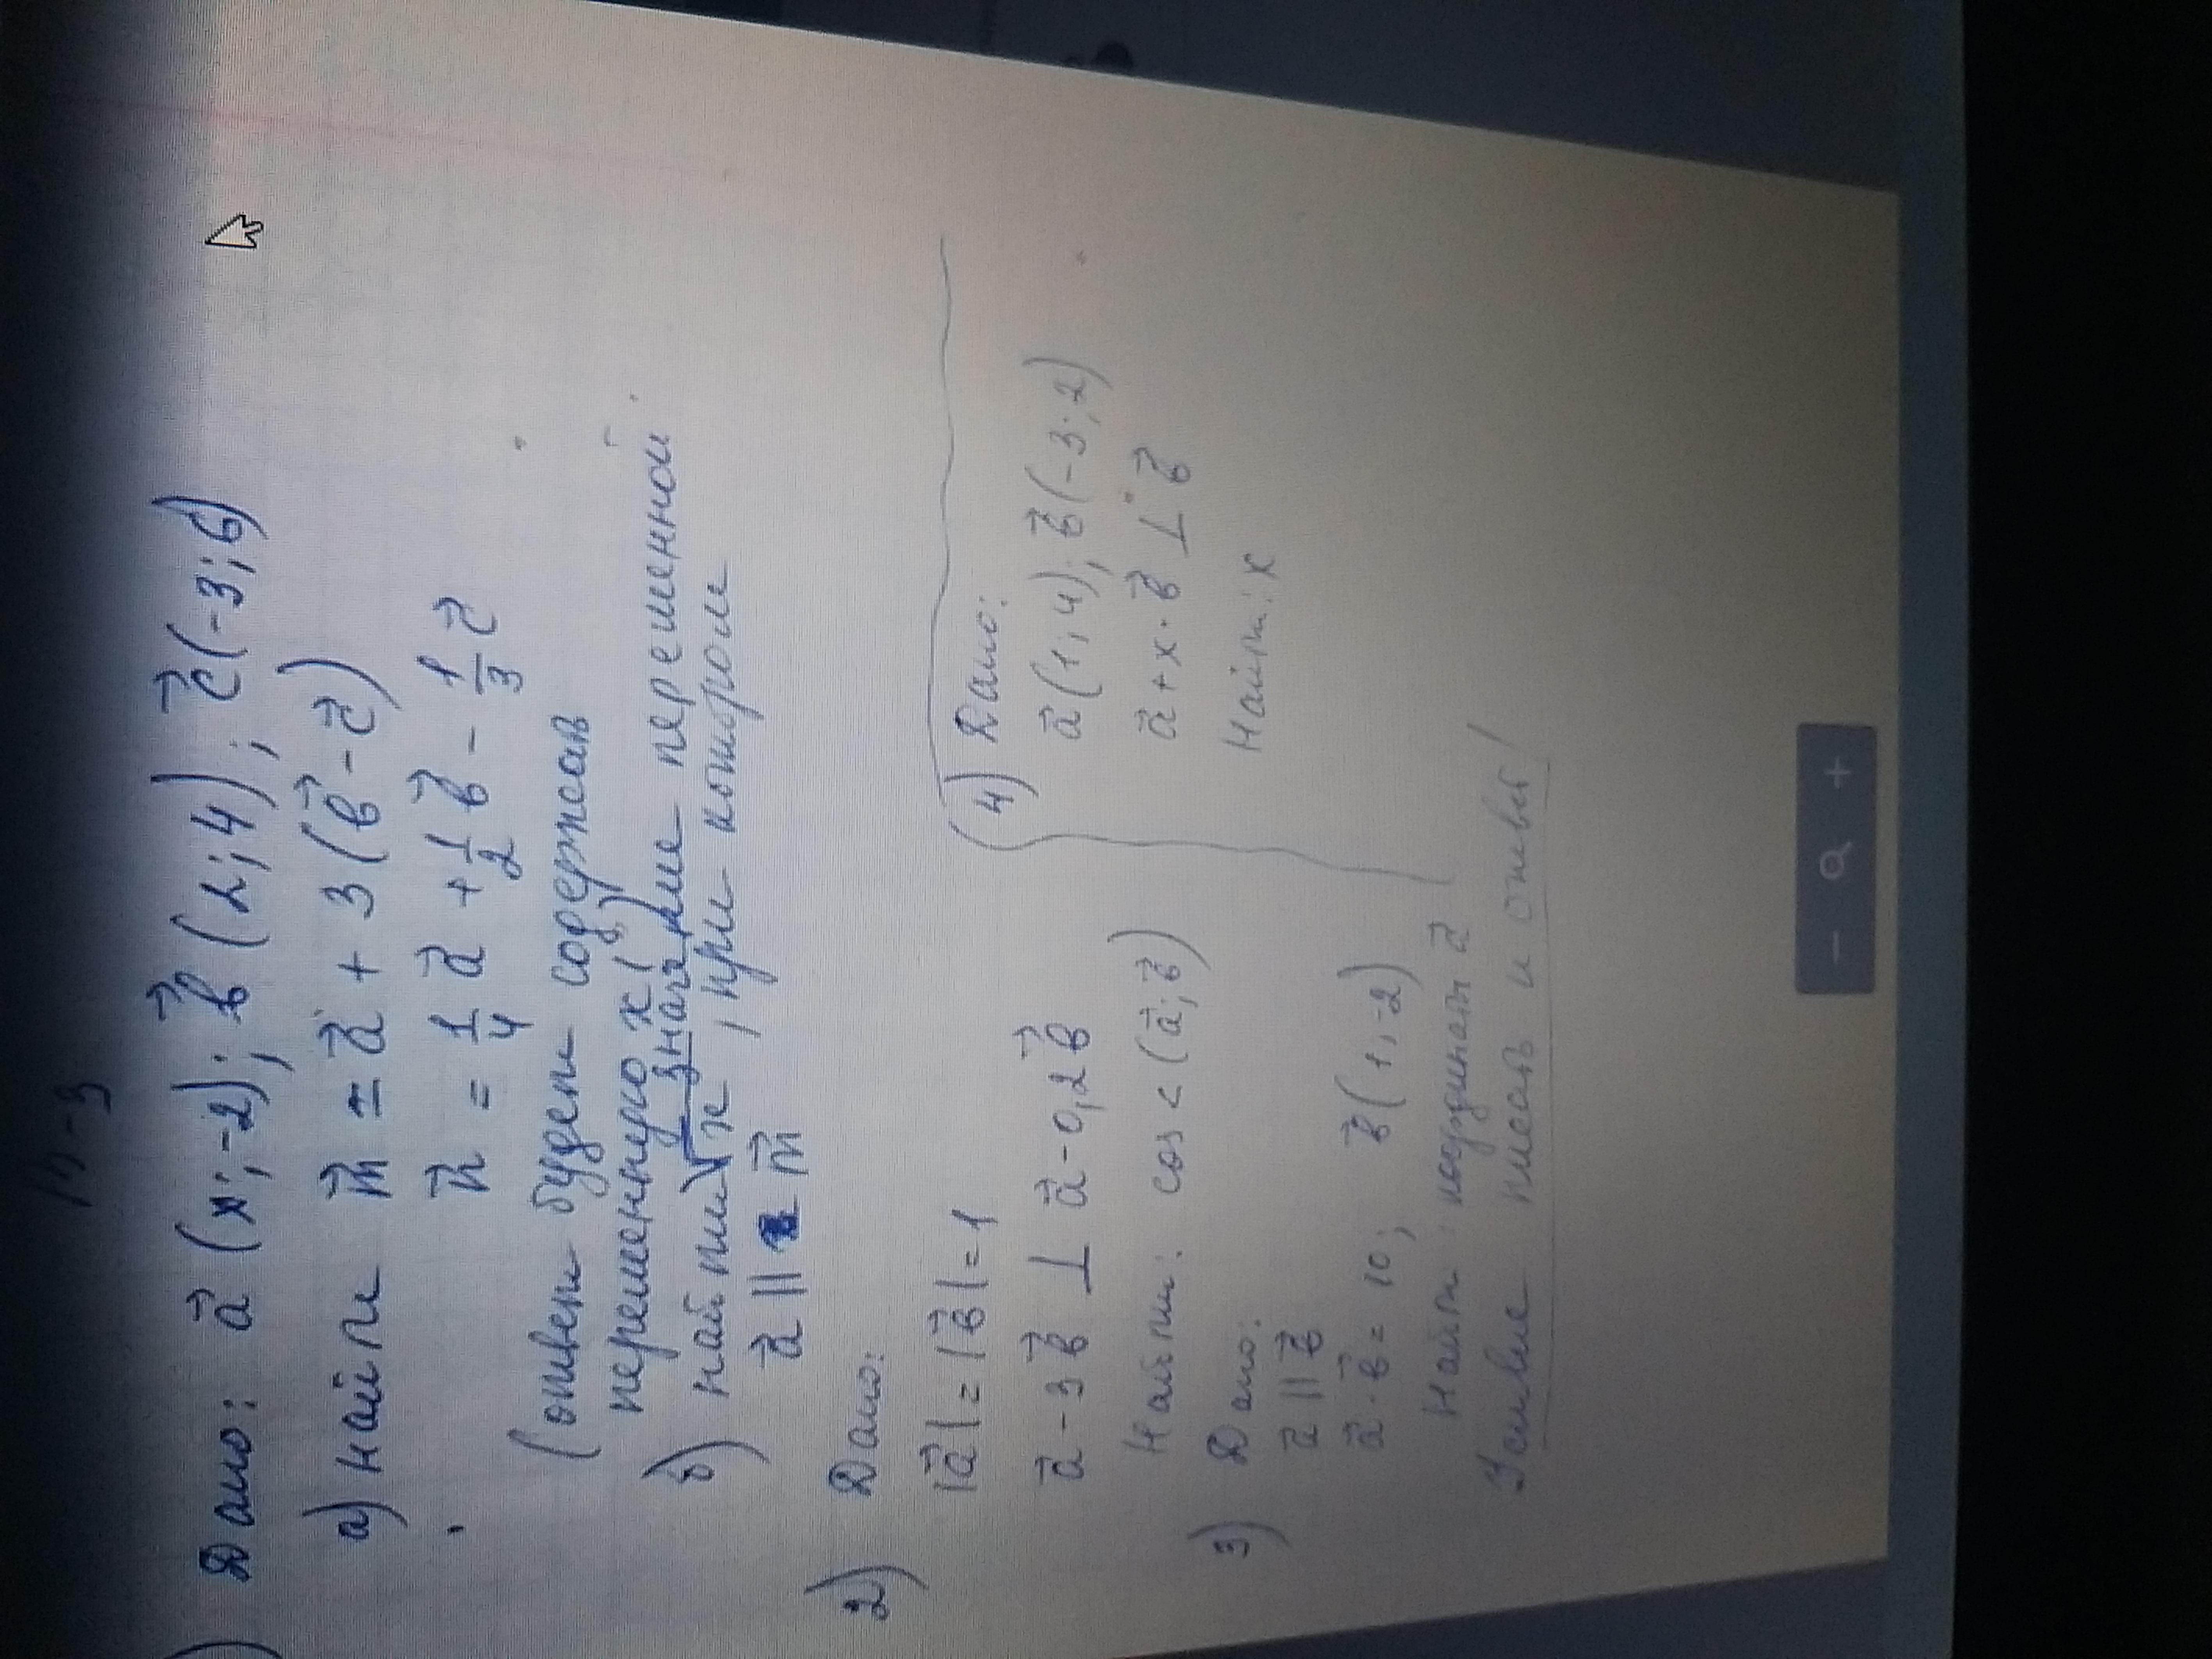 В-3
) Дано: a⃗ (x; -2); b⃗ (2; 4); c⃗ (-3; 6)
а) найти m⃗ = a⃗ + 3(b⃗ - c⃗)
n⃗ = 1/4 a⃗ + 1/2 b⃗ - 1/3 c⃗
(ответ будет содержать
переменную x!)
б) найти значение переменной
x, при котором
a⃗ || m⃗
2) Дано:
|a⃗| = |b⃗| = 1
a⃗ - 3b⃗ ⊥ a⃗ - 0,2b⃗
Найти: cos < (a⃗; b⃗)
3) Дано:
a⃗ || b⃗
a⃗ · b⃗ = 10; b⃗ (1; -2)
Найти: координаты a⃗
писать и ответ!
4) Дано:
a⃗ (1; 4); b⃗ (-3; 2)
a⃗ + x · b⃗ ⊥ b⃗
Найти: x